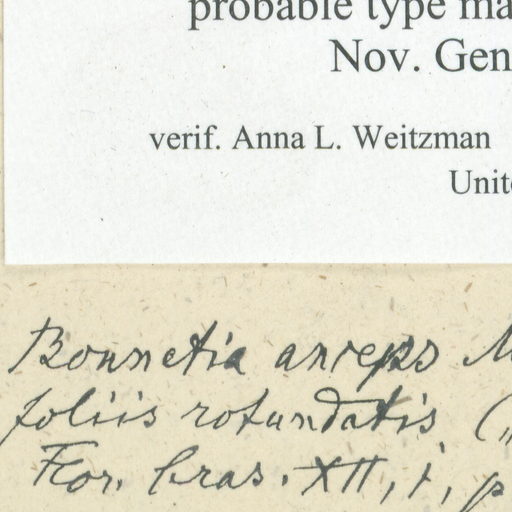 probable type ma
Nov. Gen
verif. Anna L. Weitzman
Unite
Bonnetia anceps M
foliis rotundatis („
Flor. bras. XII, i, p